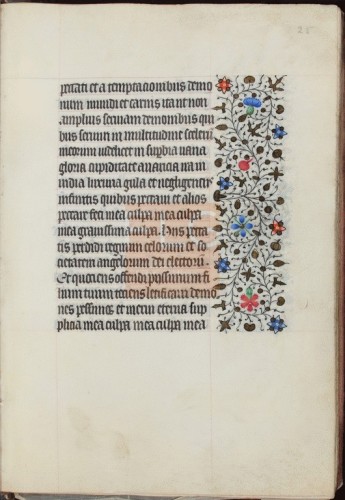 25
peccati et a temptacionibus demo
num mundi et carnis ita ut non
amplius seruiam demonibus qui
bus seruiui in multitudine sceleru
meorum videlicet in supbia uana
gloria cupiditate auaricia ira in
uidia luxuria gula et negligencijs
infinitis quibus peccaui et alios
peccare feci mea culpa mea culpa
mea grauissima culpa. Hijs pecca
tis perdidi regnum celorum et so
cietatem angelorum dei electoru.
Et quociens offendi piissimum fi
lium tuum tociens letificaui demo
nes pessimos et merui eterna sup
plicia mea culpa mea culpa mea